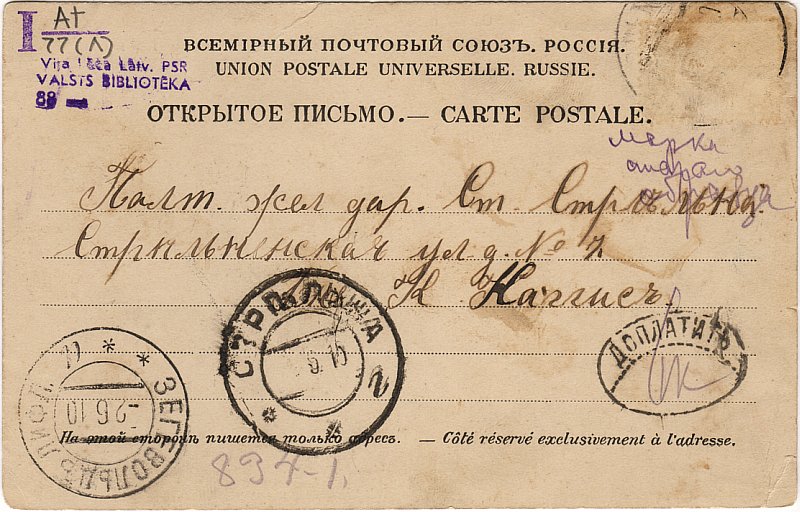 I At
77(Л)
Viļa Lāča Latv. PSR
VALSTS BIBLIOTĒKA
89
ВСЕМІРНЫЙ ПОЧТОВЫЙ СОЮЗЪ. РОССІЯ.
UNION POSTALE UNIVERSELLE. RUSSIE.
ОТКРЫТОЕ ПИСЬМО. — CARTE POSTALE.
марка
стараго
образца
Балт. жел дор. Ст. Стрѣльна.
Стрѣльненская ул. д. № 7
К.
СТРѢЛЬНА
6.10
2
ДОПЛАТИТЬ
ЗЕГЕВОЛЬДЪ ЛИФЛ.
-2 6 10
На этой сторонѣ пишется только адресъ. — Côté réservé exclusivement à l'adresse.
894-1.